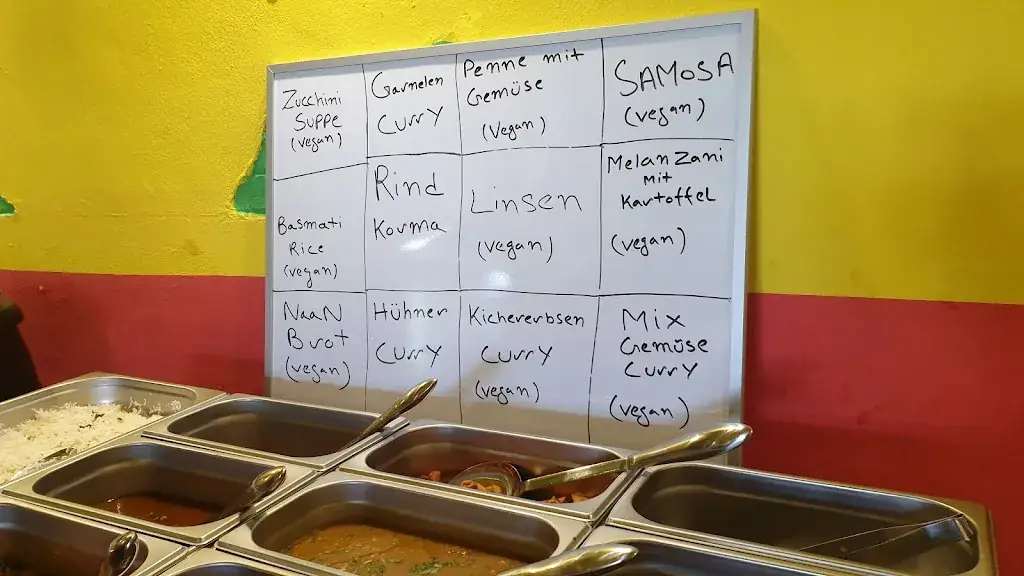 Zucchini
Suppe
(vegan)
Garnelen
Curry
Penne mit
Gemüse
(Vegan)
SAMOSA
(vegan)
Basmati
Rice
(vegan)
Rind
Korma
Linsen
(vegan)
Melanzani
mit
Kartoffel
(vegan)
NaaN
Brot
(vegan)
Hühner
Curry
Kichererbsen
Curry
(vegan)
Mix
Gemüse
Curry
(vegan)